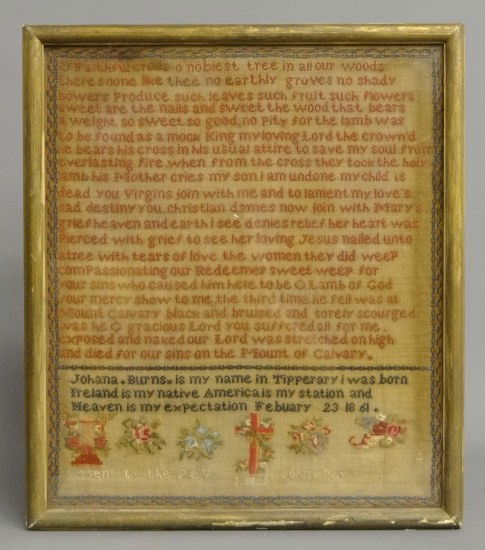 O Faithful cross o noblest tree in all our woods
theres none like thee no earthly groves no shady
bowers Produce such leaves such fruit such flowers
sweet are the nails and sweet the wood that bears
a weight so sweet so good no pity for the lamb was
to be found as a mock King my loving Lord the crown'd
he bears his cross in his usual attire to save my soul from
everlasting fire when from the cross they took the holy
lamb his Mother cries my son i am undone my child is
dead you Virgins join with me and to lament my love's
sad destiny you christian dames now join with Mary's
grief heaven and earth i see denies relief her heart was
Pierced with grief to see her loving Jesus nailed unto
a tree with tears of love the women they did weep
comPassionating our Redeemer sweet weep for
your sins who caused him here to be O Lamb of God
your mercy show to me the third time he fell was at
Mount Calvary black and bruised and sorely scourged
was he O gracious Lord you suffered all for me
exposed and naked our Lord was stretched on high
and died for our sins on the Mount of Calvary.
Johana. Burns. is my name in Tipperary i was born
Ireland is my native America is my station and
Heaven is my expectation Febuary 23 1861.
to the Rev